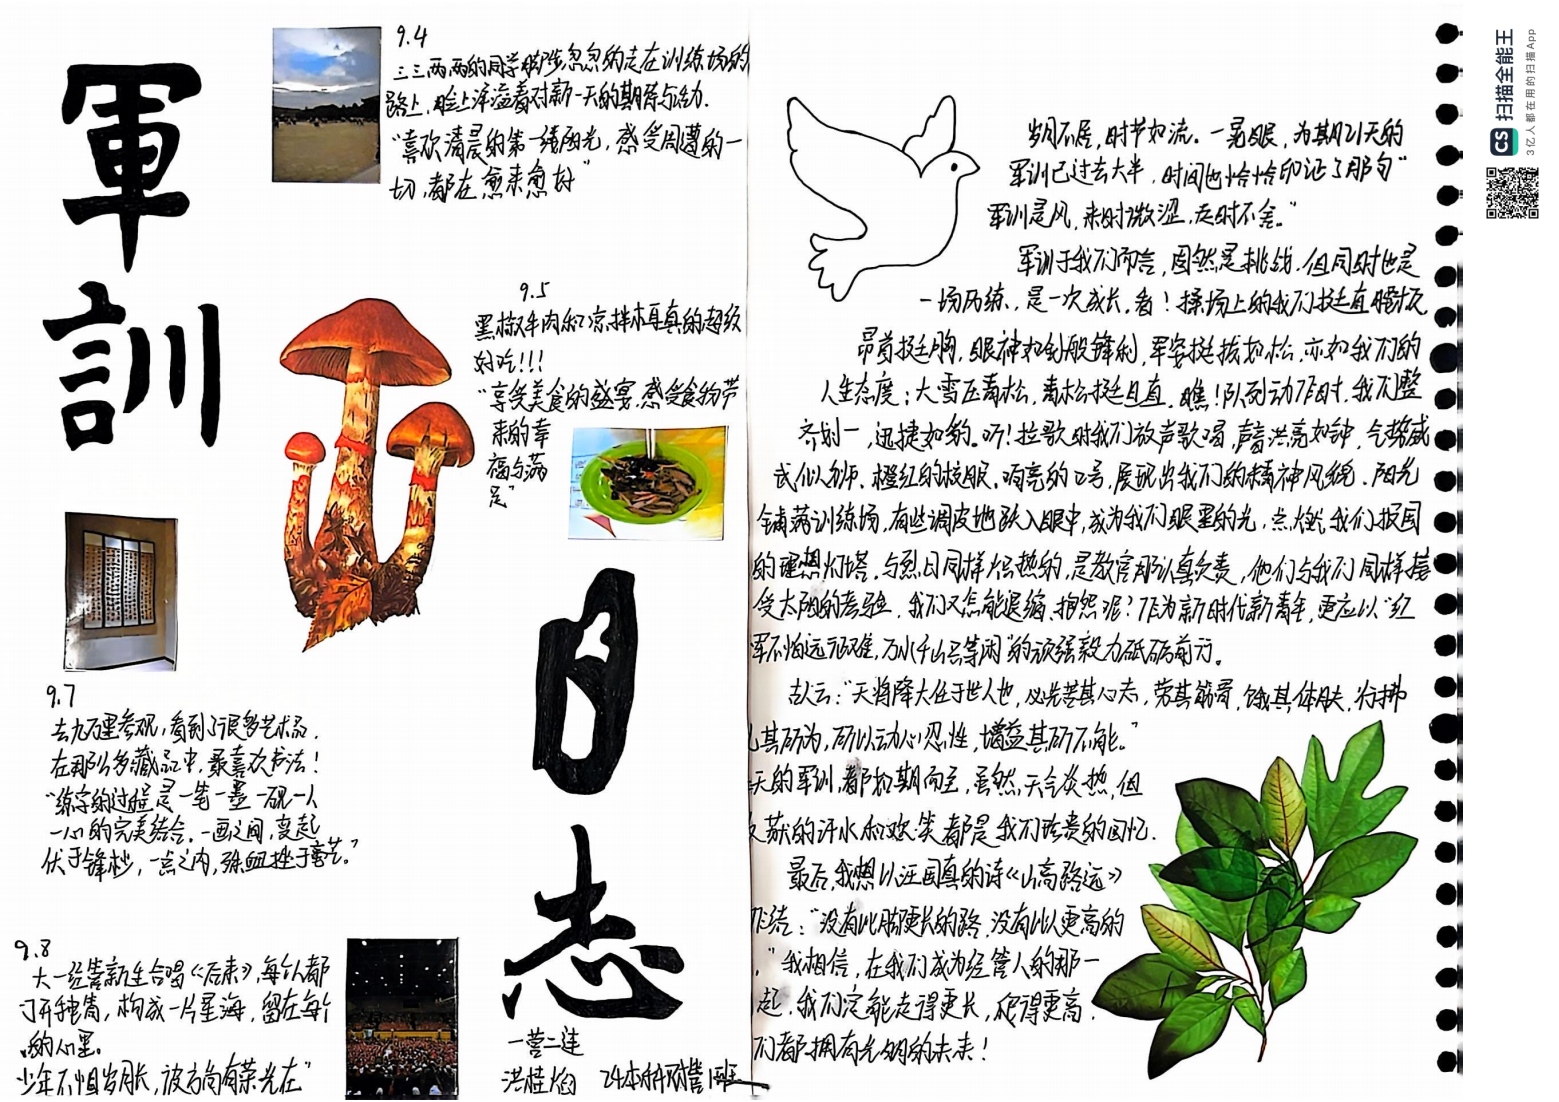 軍
訓
9.4
三三两两的同学脚步忽忽的走在训练场的
路上,脸上洋溢着对新一天的期待与活力.
“喜欢清晨的第一缕阳光,感受周遭的一
切,都在愈来愈好”
9.5
黑椒牛肉和凉拌木耳真的超级
好吃!!!
“享受美食的盛宴,感受食物带
来的幸
福与满
足”
9.7
去九万里参观,看到了很多艺术品.
在那么多藏品中,最喜欢书法!
“练字的过程是一笔一墨一砚一人
一心的完美结合.一画之间,变起
伏于锋杪,一点之内,殊衄挫于毫芒.”
9.8
大一经管新生合唱《后来》,每个人都
打开手电筒,构成一片星海,留在每个
的心里.
少年不惧岁月长,彼方尚有荣光在”
日
志
一营二连
洪桂焰 24本科财管1班
岁月不居,时节如流.一晃眼,为期21天的
军训已过去大半,时间也恰恰印证了那句“
军训是风,来时微涩,走时不舍.”
军训于我们而言,固然是挑战.但同时也是
一场历练,是一次成长.看!操场上的我们挺直腰板
昂首挺胸,眼神如剑般锋利,军姿挺拔如松,亦如我们的
人生态度:大雪压青松,青松挺且直.瞧!队列动作时,我们整
齐划一,迅捷如豹.听!拉歌时我们放声歌唱,声音洪亮如钟,气势威
武似狮.橙红的校服,响亮的口号,展现出我们的精神风貌.阳光
铺满训练场,有些调皮地跃入眼中,成为我们眼里的光,点燃我们报国
的理想灯塔.与烈日同样炽热的,是教官那认真负责,他们与我们同样接
受太阳的考验,我们又怎能退缩、抱怨呢?作为新时代新青年,更应以“红
军不怕远征难,万水千山只等闲”的顽强毅力砥砺前行.
古人云:“天将降大任于世人也,必先苦其心志,劳其筋骨,饿其体肤,行拂
乱其所为,所以动心忍性,增益其所不能.”
天的军训,都如期而至,虽然,天气炎热,但
献的汗水和欢笑都是我们珍贵的回忆.
最后,我想以汪国真的诗《山高路远》
作结:“没有比脚更长的路,没有比人更高的
.”我相信,在我们成为经管人的那一
起,我们定能走得更长,爬得更高.
们都拥有光明的未来!
CS 扫描全能王
3亿人都在用的扫描App